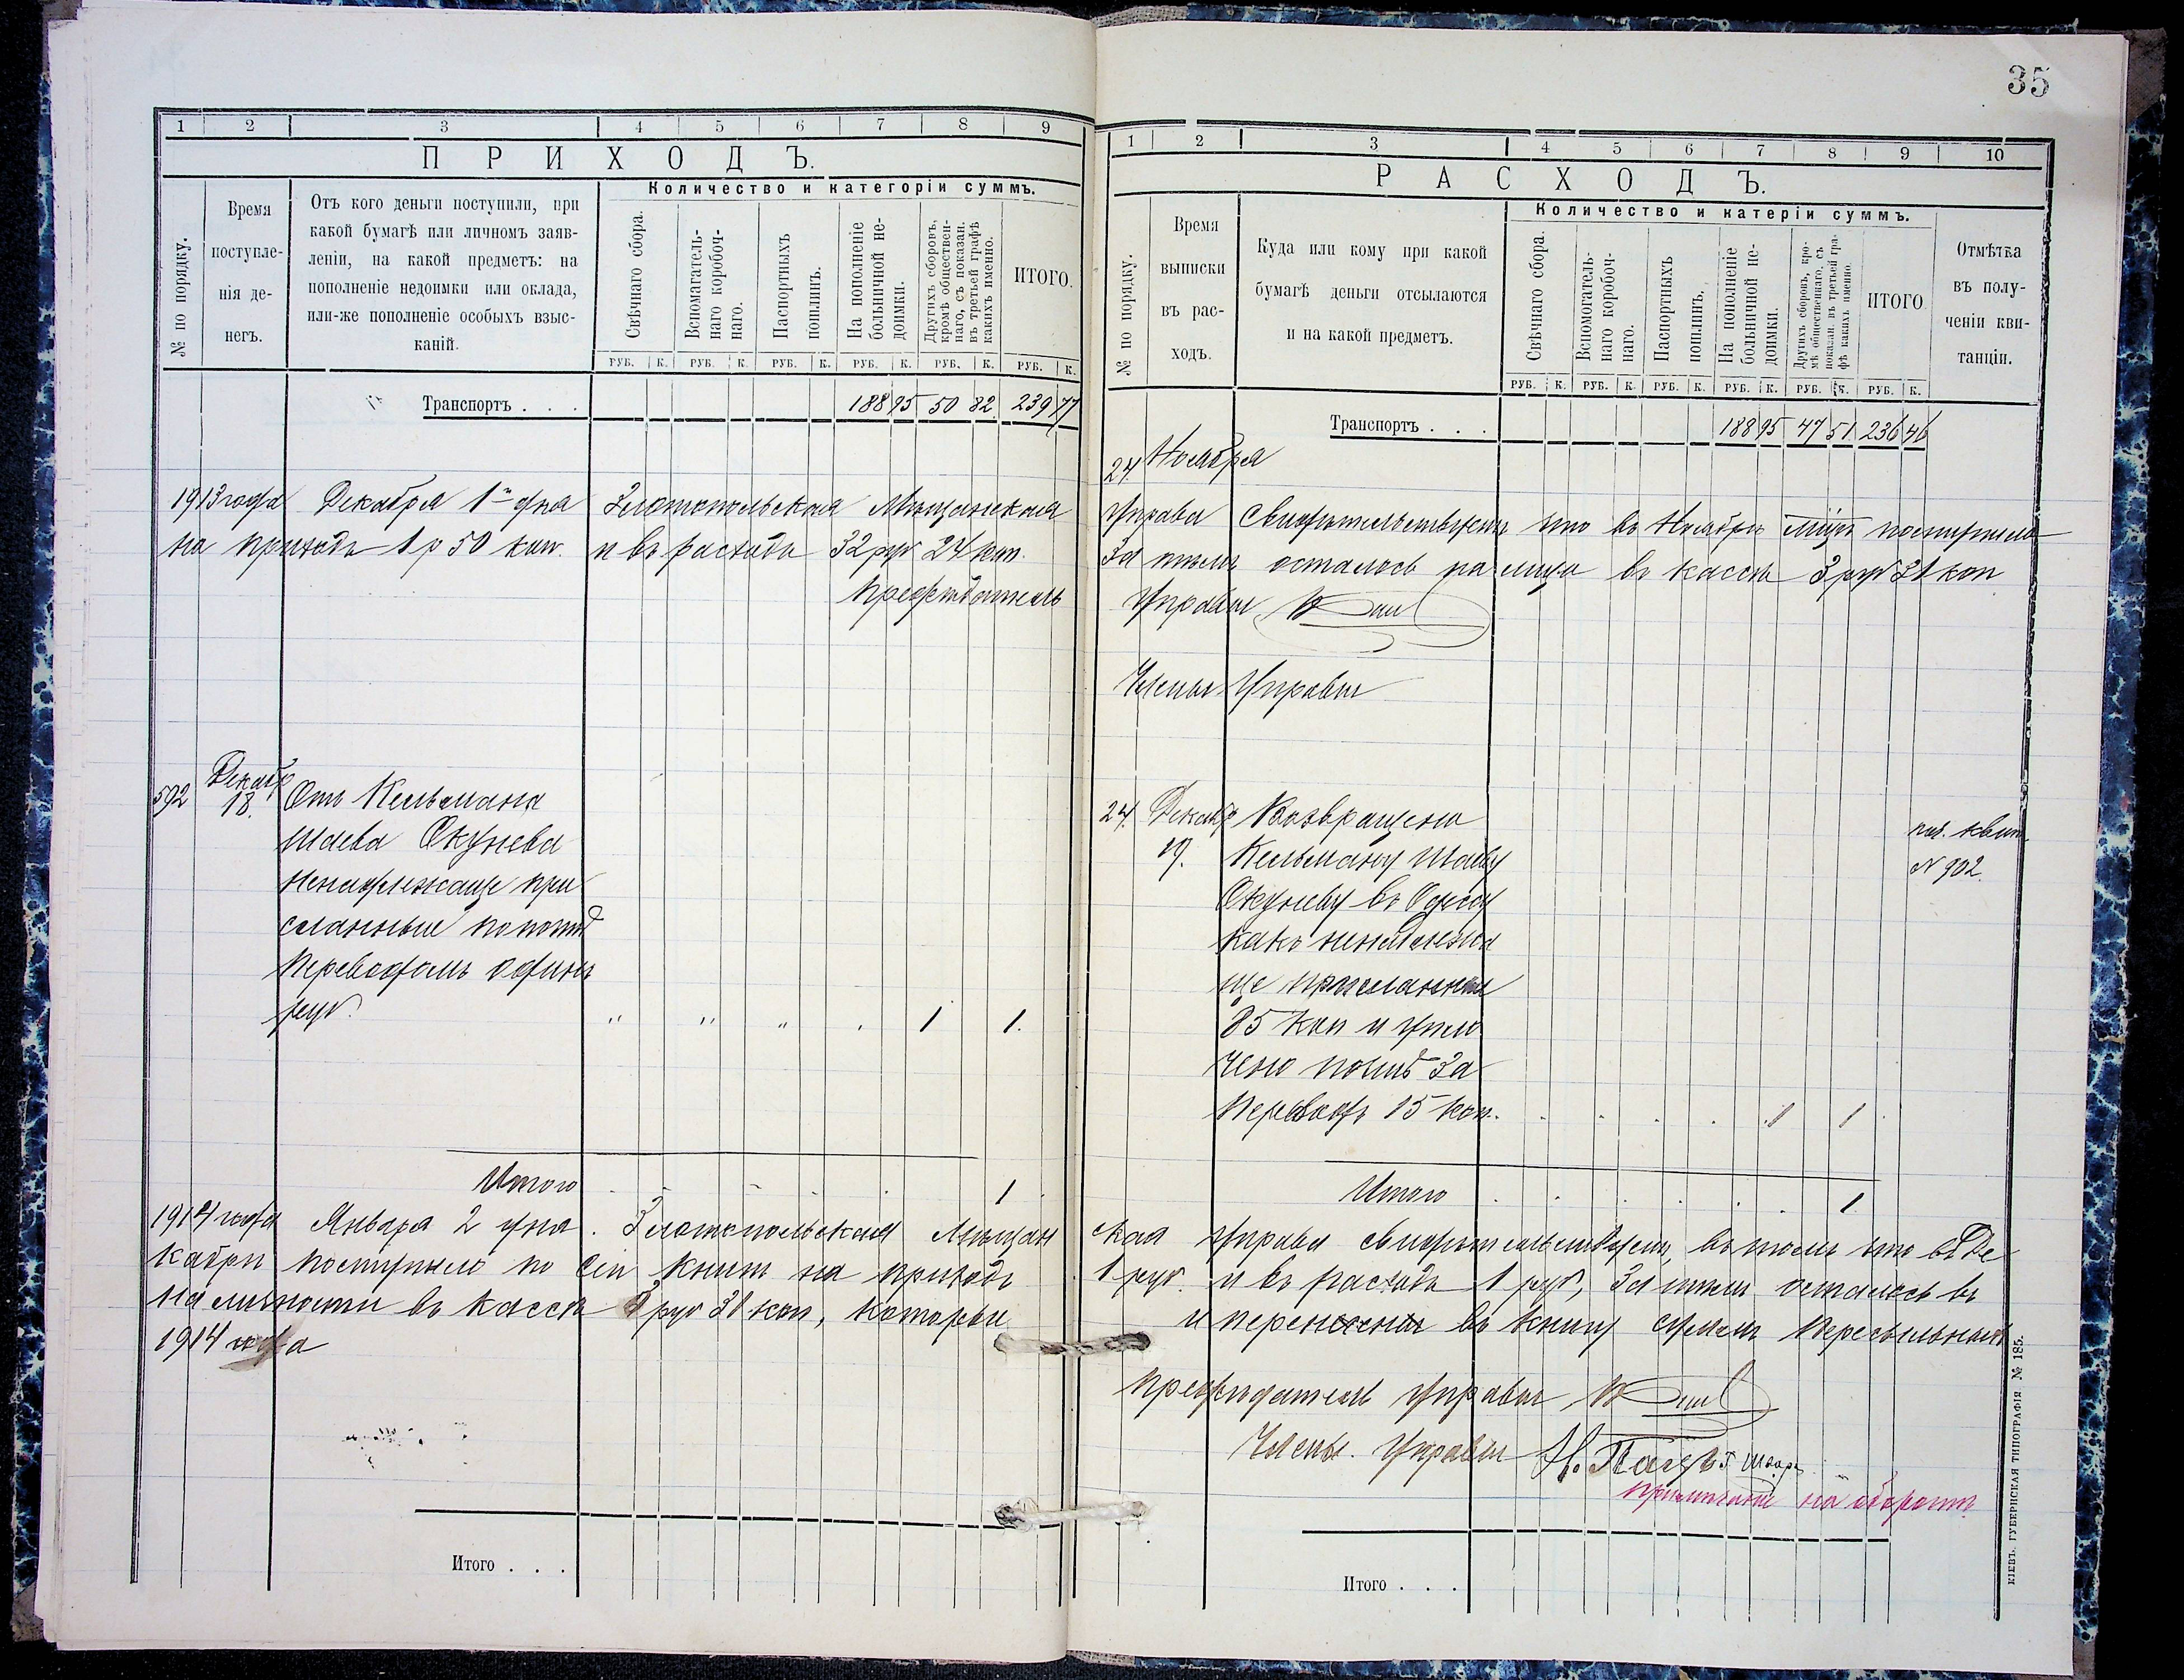 35
1 2 3 4 5 6 7 8 9
ПРИХОДЪ.
№ по порядку.
Время поступле-нія де-негъ.
Отъ кого деньги поступили, при
какой бумагѣ или личномъ заяв-
леніи, на какой предметъ: на
пополненіе недоимки или оклада,
или-же пополненіе особыхъ взыс-
каній.
Количество и категоріи суммъ.
Свѣчнаго сбора.
Вспомагатель-
наго коробоч-
наго.
Паспортныхъ
пошлинъ.
На пополненіе
больничной не-
доимки.
Другихъ сборовъ,
кромѣ обществен-
наго, съ показан.
въ третьей графѣ
какихъ именно.
ИТОГО.
РУБ. К. РУБ. К. РУБ. К. РУБ. К. РУБ. К. РУБ. К.
Транспортъ . . . 188 95 50 82 239 77
1913 года Декабря 1го дня Златопольская Мѣщанская
на приходъ 1 р 50 коп. и въ расходъ 32 руб 24 коп.
Предсѣдатель
592 Декабр 18. Отъ Кельмана
Шаева Окунева
ненадлежаще при
сланные по почтѣ
переводомъ одинъ
руб. " " " . 1 1.
Итого 1
1914 года Января 2 дня. Златопольская Мѣщан
кабрѣ поступило по сей книгѣ на приходъ
наличности въ кассѣ 3 руб 31 коп, которыи
1914 года
Итого . . .
1 2 3 4 5 6 7 8 9 10
РАСХОДЪ.
№ по порядку.
Время
выписки
въ рас-
ходъ.
Куда или кому при какой
бумагѣ деньги отсылаются
и на какой предметъ.
Количество и катеріи суммъ.
Свѣчнаго сбора.
Вспомогатель-
наго коробоч-
наго.
Паспортныхъ
пошлинъ.
На пополненіе
больничной не-
доимки.
Другихъ сборовъ, кро-
мѣ общественнаго, съ
показан. въ третьей гра-
фѣ какихъ именно.
ИТОГО
Отмѣтка
въ полу-
ченіи кви-
танціи.
РУБ. К. РУБ. К. РУБ. К. РУБ. К. РУБ. К. РУБ. К.
Транспортъ . . . 188 95 47 51 236 46
24. Ноября
Управа свидѣтельствуетъ что въ Ноябрѣ м-цѣ поступило
За тѣмъ осталось на лицо въ кассѣ 3 руб 31 коп
Управы
Члены Управы
24. Декабр 19. Возвращено
Кельману Шаеву
Окуневу въ Одессу
какъ ненадлежа
ще присланныя
85 коп и упла
чено почтѣ за
переводъ 15 коп. 1 1
пол. квит
N 902.
Итого 1
ская Управа свидѣтельствуетъ въ томъ что въ Де
1 руб. и въ расходъ 1 руб, за тѣмъ осталось въ
и перенесены въ книгу суммъ пересыльныхъ
Предсѣдатель Управы
Члены Управы
примѣчаніе на оборотѣ
Итого . . .
КІЕВЪ. ГУБЕРНСКАЯ ТИПОГРАФІЯ № 185.